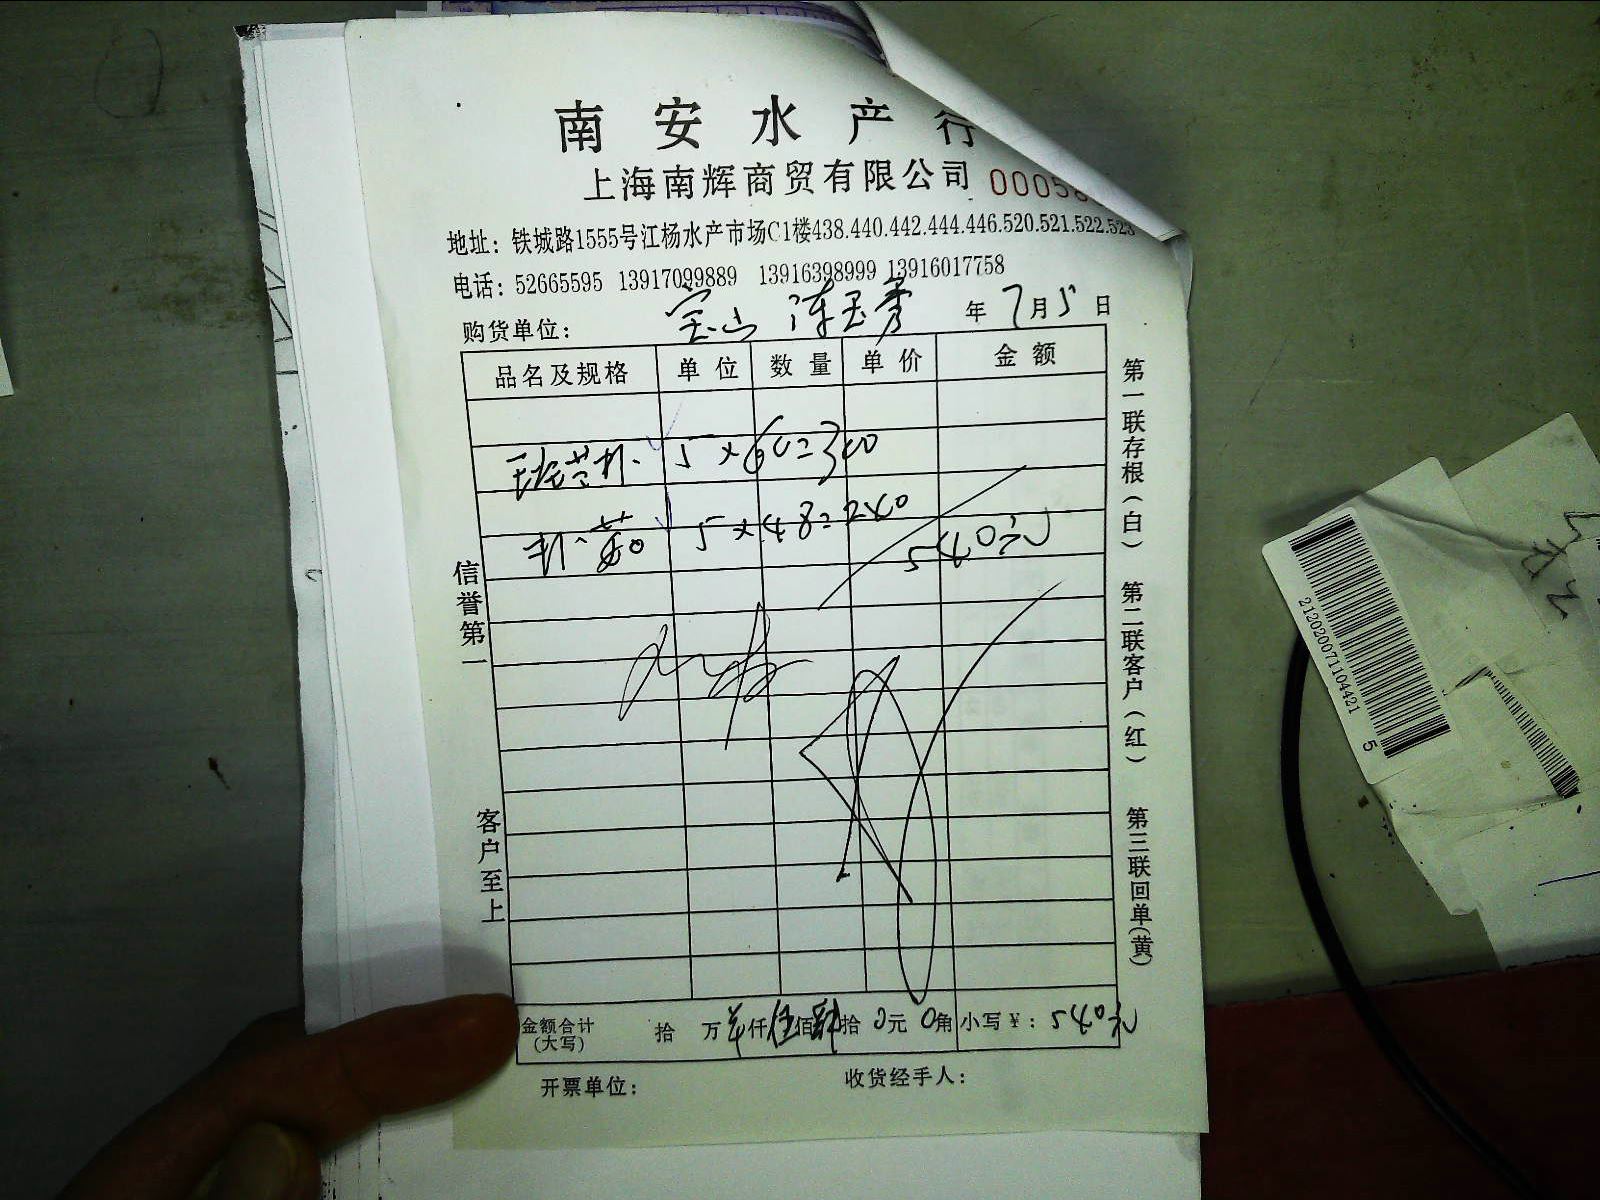 南安水产行
上海南辉商贸有限公司 00058
地址：铁城路1555号江杨水产市场C1楼438.440.442.444.446.520.521.522.523
电话：52665595 13917099889 13916398999 13916017758
购货单位： 宝山 陈玉秀 年 7月5日
品名及规格 单位 数量 单价 金额
5×60=300
5×48=240
540元
金额合计(大写) 拾 万 仟 伍佰 肆拾 0元 0角 小写￥：540元
开票单位： 收货经手人：
信誉第一
客户至上
第一联存根(白) 第二联客户(红) 第三联回单(黄)
2120200711044215